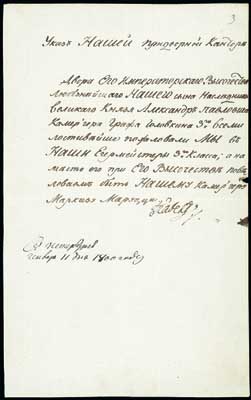 3
Указъ Нашей придворной Канторѣ
Двора Его Императорскаго Высочества
Любезнѣйшаго Нашего сына Наслѣдника
Великаго Князя Александра Павловича
Камергера Графа Головкина 3го Всеми
лостивѣйше пожаловали Мы въ
Наши Егермейстеры 3го класса; а на
мѣсто его при Его Высочествѣ повѣ
ваемъ быть Нашему Камергеру
Маркизу
Павелъ
Генваря 11 дня 1800 году